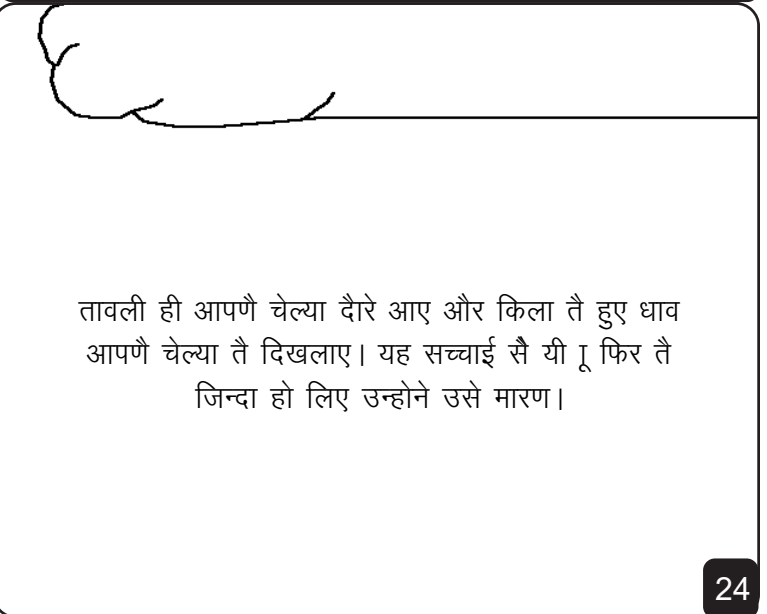 तावली ही आपणै चेल्या दैारे आए और किला तै हुए धाव
आपणै चेल्या तै दिखलाए। यह सच्चाई सै यी फिर तै
जिन्दा हो लिए उन्होने उसे मारण।
24